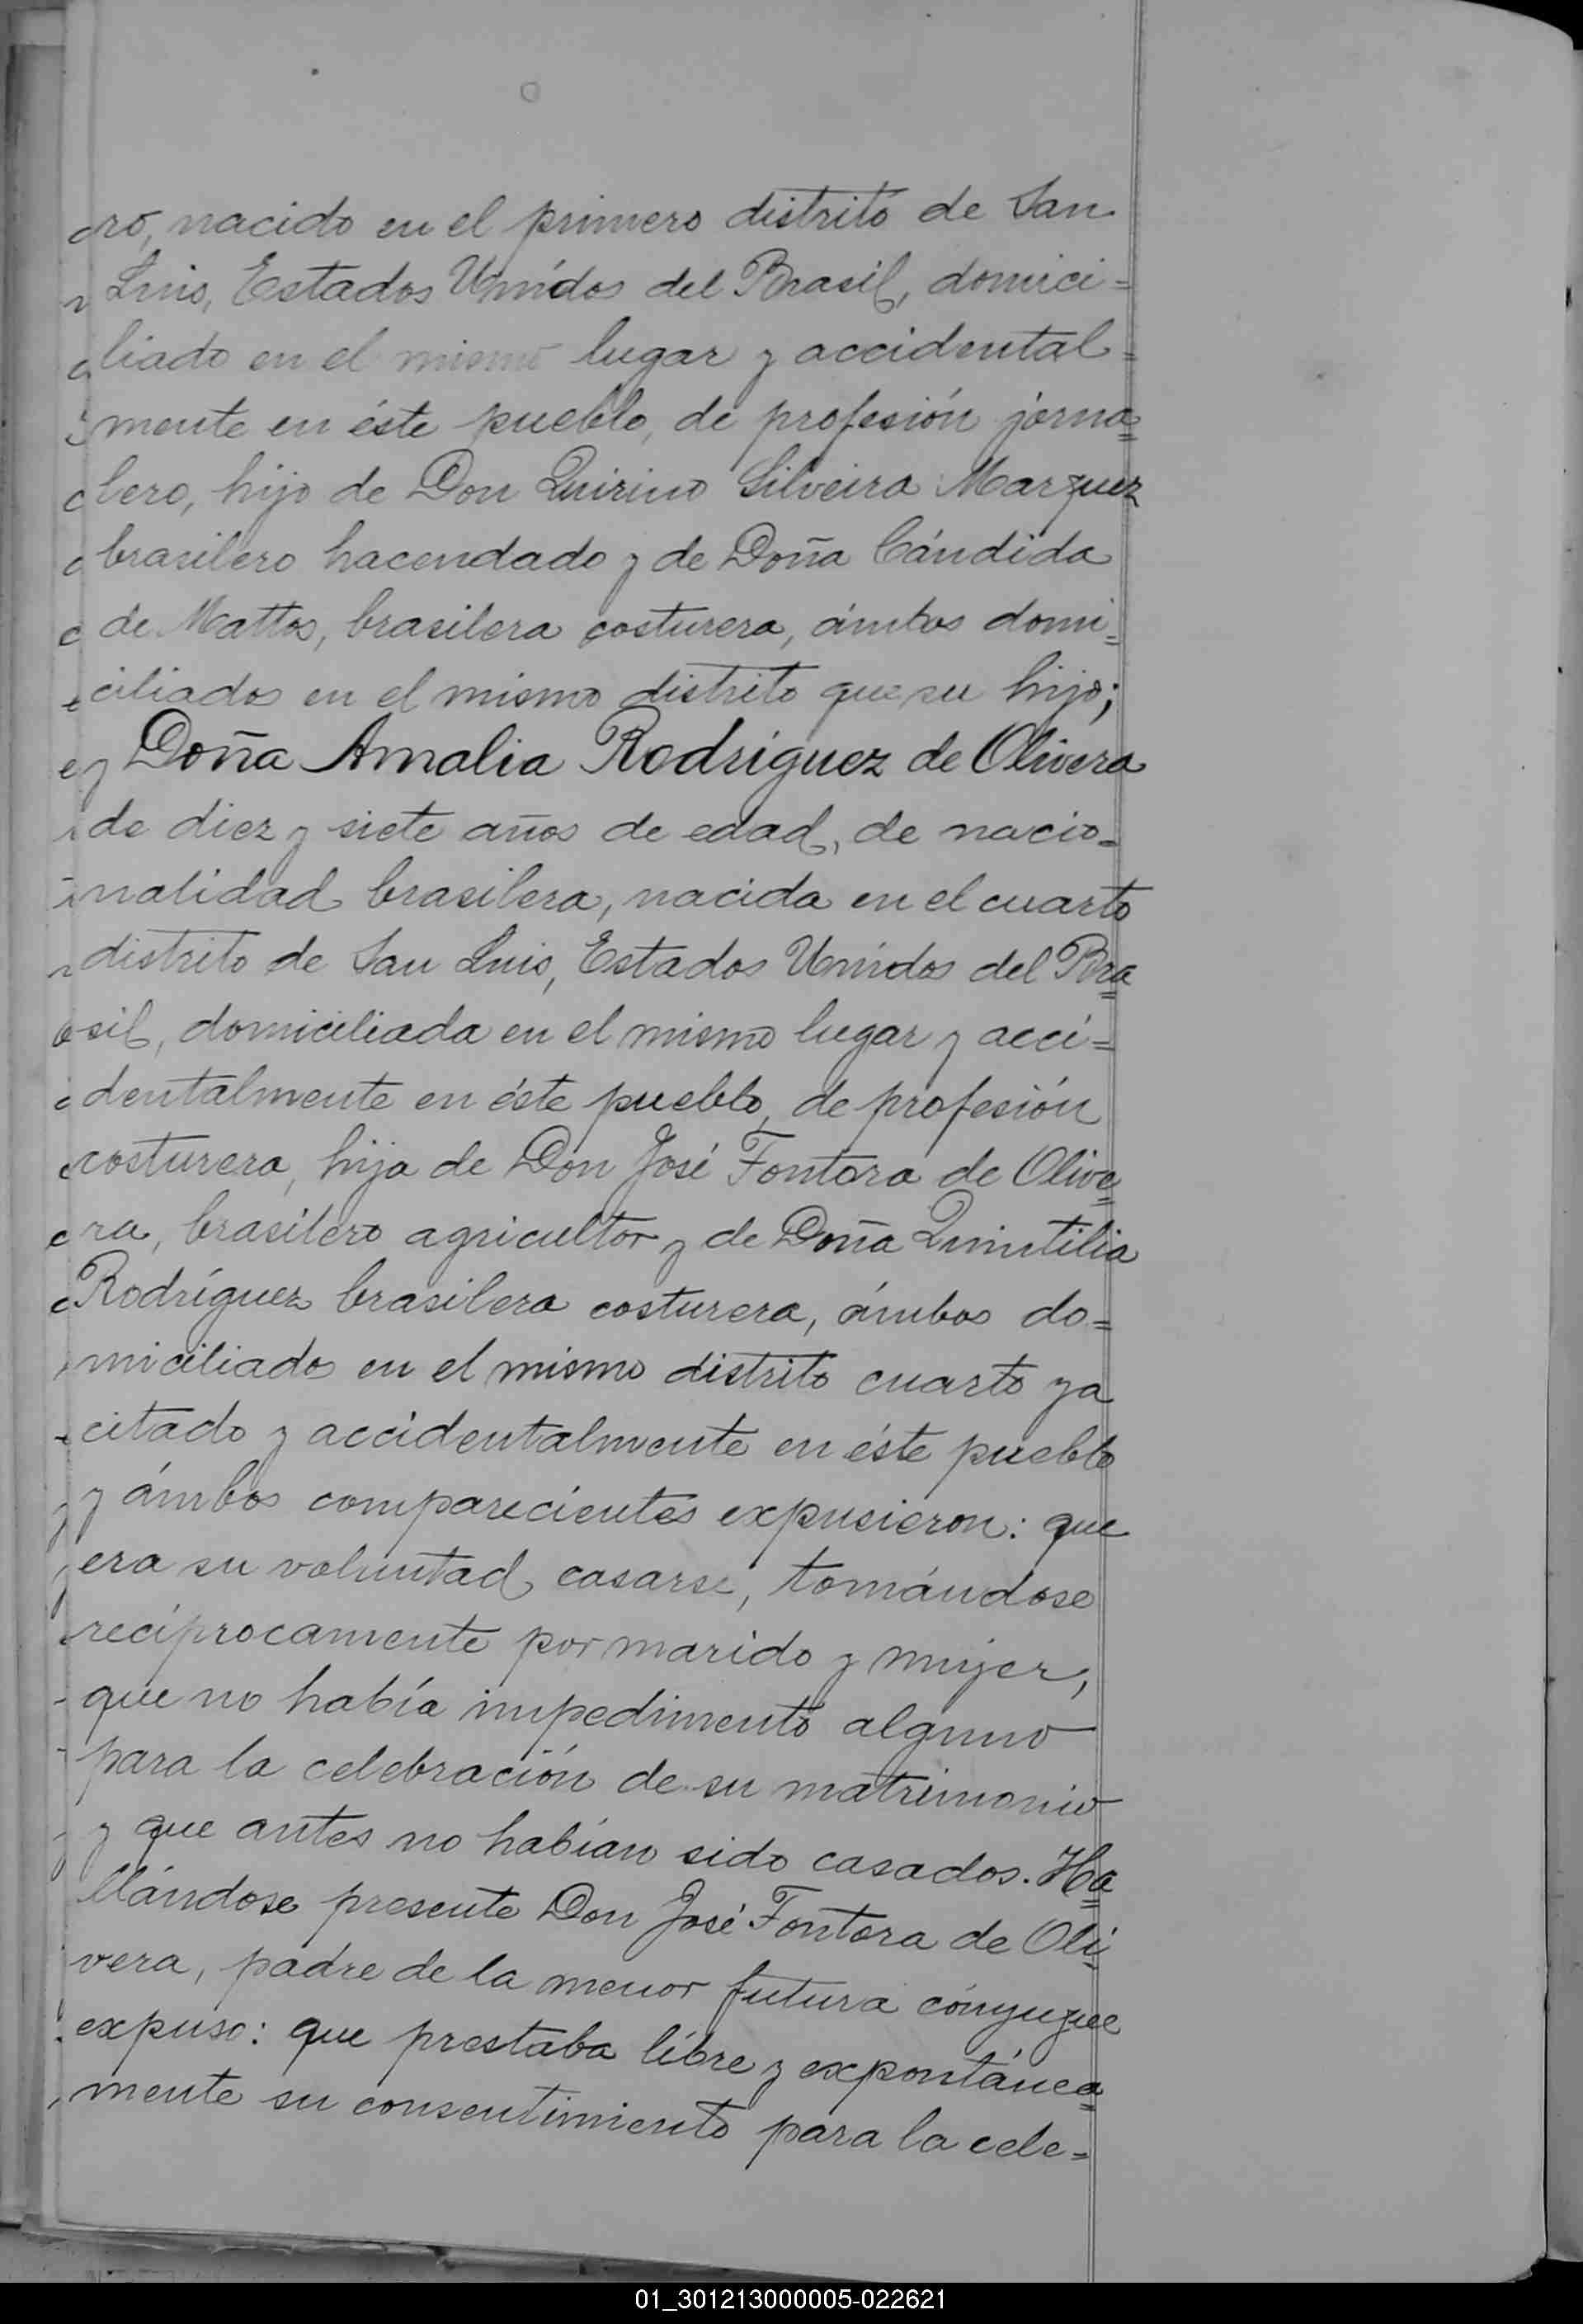 ro, nacido en el primero distrito de San
Luis, Estados Unidos del Brasil, domici=
liado en el mismo lugar y accidental=
mente en éste pueblo, de profesión jorna=
lero, hijo de Don Quirino Silveira Marquez
brasilero hacendado y de Doña Cándida
de Mattos, brasilera costurera, ámbos domi=
ciliados en el mismo distrito que su hijo;
y Doña Amalia Rodríguez de Olivera
de diez y siete años de edad, de nacio=
nalidad brasilera, nacida en el cuarto
distrito de San Luis, Estados Unidos del Bra=
sil, domiciliada en el mismo lugar y acci=
dentalmente en éste pueblo, de profesión
costurera, hija de Don José Fontora de Olive=
ra, brasilero agricultor y de Doña Quintilia
Rodríguez brasilera costurera, ámbos do=
miciliados en el mismo distrito cuarto ya
citado y accidentalmente en éste pueblo
y ámbos comparecientes expusieron: que
era su voluntad casarse, tomándose
recíprocamente por marido y mujer,
que no había impedimento alguno
para la celebración de su matrimonio
y que antes no habían sido casados. Ha=
llándose presente Don José Fontora de Oli=
vera, padre de la menor futura cónyugue
expuso: que prestaba líbre y expontánea=
mente su consentimiento para la cele=
01_301213000005-022621